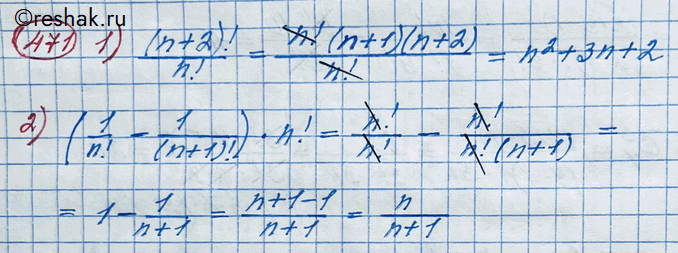 ©reshak.ru
471 1) (n+2)!/n! = n!(n+1)(n+2)/n! = n²+3n+2
2) (1/n! - 1/(n+1)!) · n! = n!/n! - n!/n!(n+1) =
= 1 - 1/n+1 = n+1-1/n+1 = n/n+1